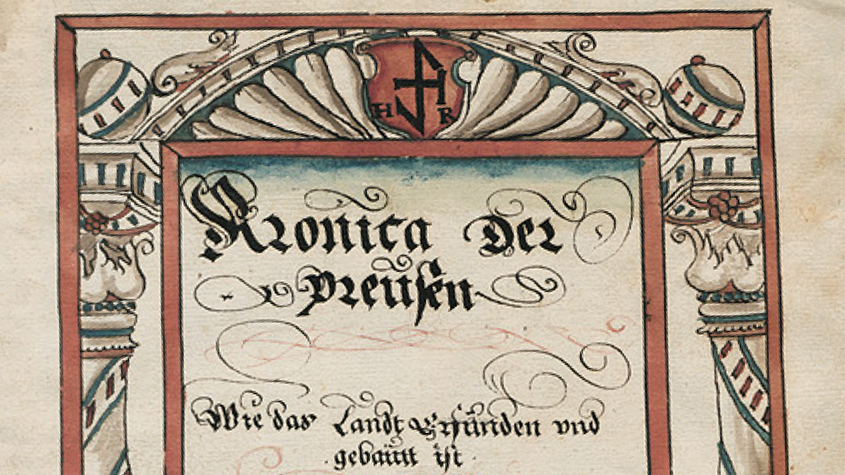 H R
Kronica Der
Preüsen
Wie das Landt Erfunden vnd
gebaütt ist